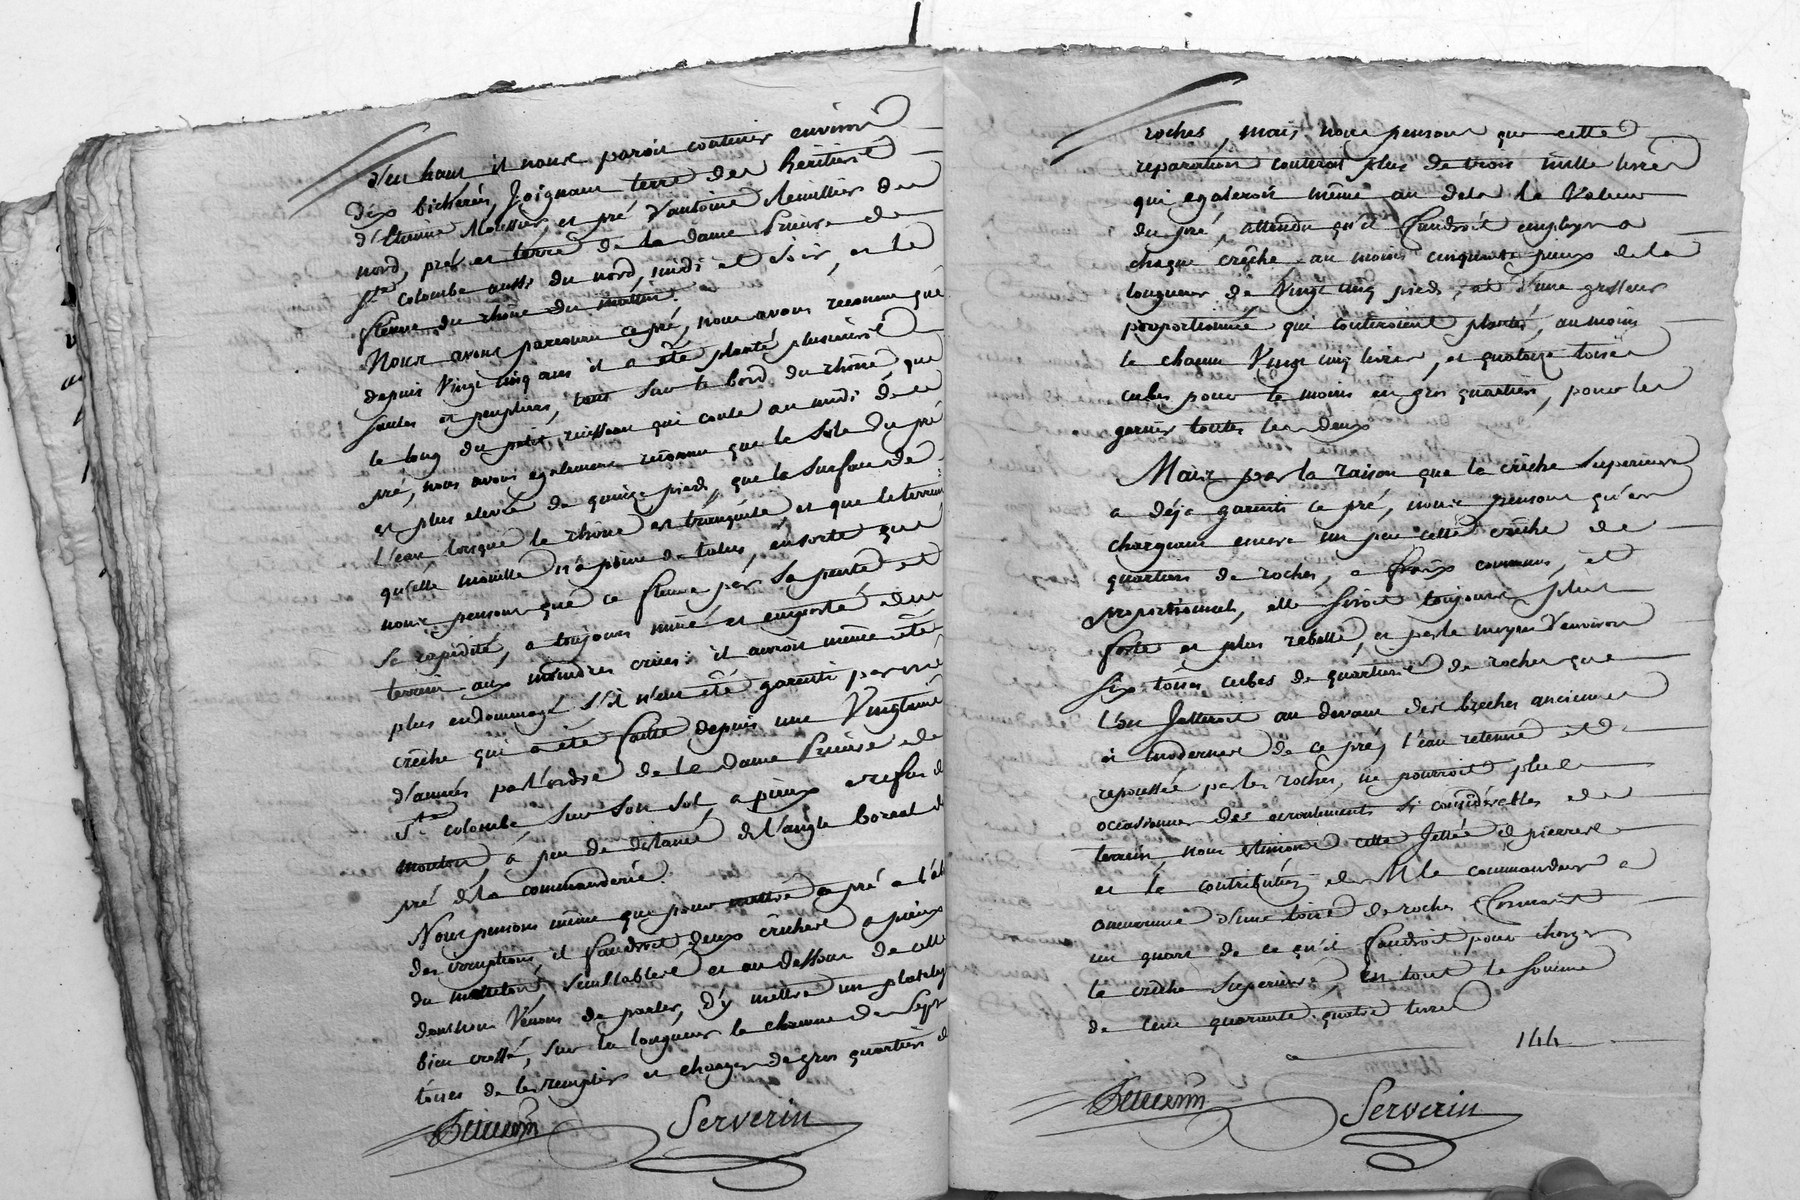 d'en haut il nous paroit contenir environ
dix bicherées, Joignant terre des heritiers
d'Etienne Moussier, et pré d'antoine Remillier du
nord, prés et terre de la dame Prieure de
Ste colombe aussi du nord, midi et soir, et le
fleuve du rhône du matin.
Nous avons parcouru ce pré, nous avons reconnu que
depuis Vingt cinq ans il a été planté plusieurs
saules et peupliers, tant sur le bord du rhône, que
le long du petit ruisseau qui coule au midi de ce
pré, nous avons egalement reconnu que le sole du pré
est plus elevé de quinze pieds, que la surface de
l'eau lorsque le rhône est tranquile et que le terrein
qu'elle mouille n'a point de talus, ensorte que
nous pensons que ce fleuve par sa pente et
sa rapidité, a toujours miné et emporté du
terrein aux moindres crües; il auroit même été
plus endommagé s'il n'eut été garenti par une
crêche qui a été faite depuis une Vingtaine
d'années par l'ordre de la Dame Prieure de
Ste colombe sur son sol, a pieux et refus de
mouton à peu de distance de l'angle boreal du
pré de la commanderie.
Nous pensons même que pour mettre ce pré a l'abri
des corruptions, il faudroit deux crêches a pieux
du semblables et au dessous de celle
dont nous Venons de parler, d'y mettre un
bien croisé, sur la longueur la chacune de Sept
toises de les remplir et charger de gros quartiers de
Serverin
roches, mais nous pensons que cette
reparation couteroit plus de trois mille livres
qui egaleroit même au dela la Valeur
du pré, attendu qu'il faudroit employer a
chaque crêche au moins cinquante pieux de la
longueur de Vingt cinq pieds, et d'une grosseur
proportionnée qui couteroient plantés, au moins
le chacun Vingt cinq livres, et quatorze toises
cubes pour le moins en gros quartiers, pour les
garnir toutes les deux
Mais par la raison que la crêche superieure
a déja garenti ce pré, nous pensons qu'en
chargeant encore un peu cette crêche de
quartiers de roches, a fraix communs, et
proportionnels, elle seroit toujours plus
forte et plus rebelle, et par le moyen d'environ
six toises cubes de quartiers de roches que
l'on Jetteroit au devant des brêches anciennes
et modernes de ce pré, l'eau retenue et
repoussée par les roches, ne pourroit plus
occasionner des ecroulements si considérables de
terrein, nous estimons cette Jettée de pierres
et la contribution de M. le commandeur a
d'une toise de roches formant
un quart de ce qu'il faudroit pour charger
la crêche superieure, en tout la somme
de Cent quarante quatre livres
144
Serverin